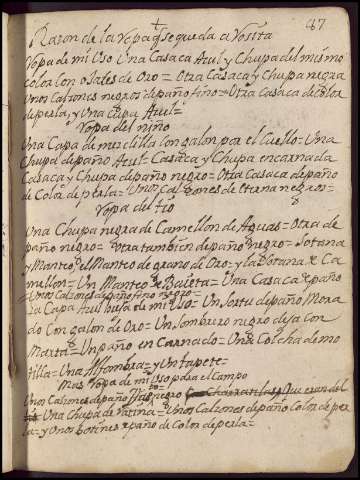 47
Razon de la ropa q̃ se queda a Rosita
Ropa de mi Uso Una Casaca Azul y Chupa del mismo
color Con ojales de Oro = Otra Casaca y Chupa negra
Unos Calzones negros de paño fino = Otra Casaca de Color
de perla, y Una Capa Azul =
Ropa del niño
Una Capa de mezclilla Con galon por el Cuello = Una
Chupa de paño Azul = Casaca y Chupa encarnada
Casaca y Chupa de paño negro = Otra Casaca de paño
de Color de perla = Unos Calzones de eterna negros =
Ropa del tio
Una Chupa negra de Camellon de Aguas = Otra de
paño negro = Otra tambien de paño negro = Sotana
y Manteo, el Manteo de grano de Oro = y la Sotana de Ca
mellon = Un Manteo de Baieta = Una Casaca de paño
Unos Calzones de paño fino negro =
la Capa Azul husada de mi Uso = Un Sortu de paño Mora
do Con galon de Oro = Un Sombrero negro de Sa Con
Marta = Un paño en Carnado = Una Colcha de mo
tilla = Una Alfombra = y Un tapete =
Mas Ropa de mi Uso para el Campo
Unos Calzones de paño negro que eran del
tio Una Chupa de ratina = Unos Calzones de paño Color de per
la = y Unos botines de paño de Color de perla =